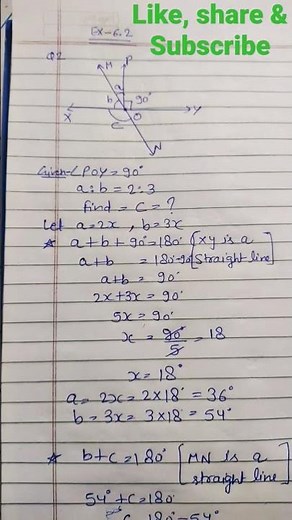 Like, share &
Subscribe
EX-6.2
Q2
M
P
a
b
90°
X
O
Y
C
N
Given-∠POY=90°
a:b=2:3
find = C = ?
Let a=2x, b=3x
* a+b+90°=180° [XY is a
a+b =180°-90° Straight line]
a+b = 90°
2x+3x = 90°
5x = 90°
x = 90°/5 = 18
x=18°
a= 2x= 2×18°=36°
b= 3x= 3×18 = 54°
* b+c=180° [MN is a
straight line]
54°+c=180
c=180°-54°